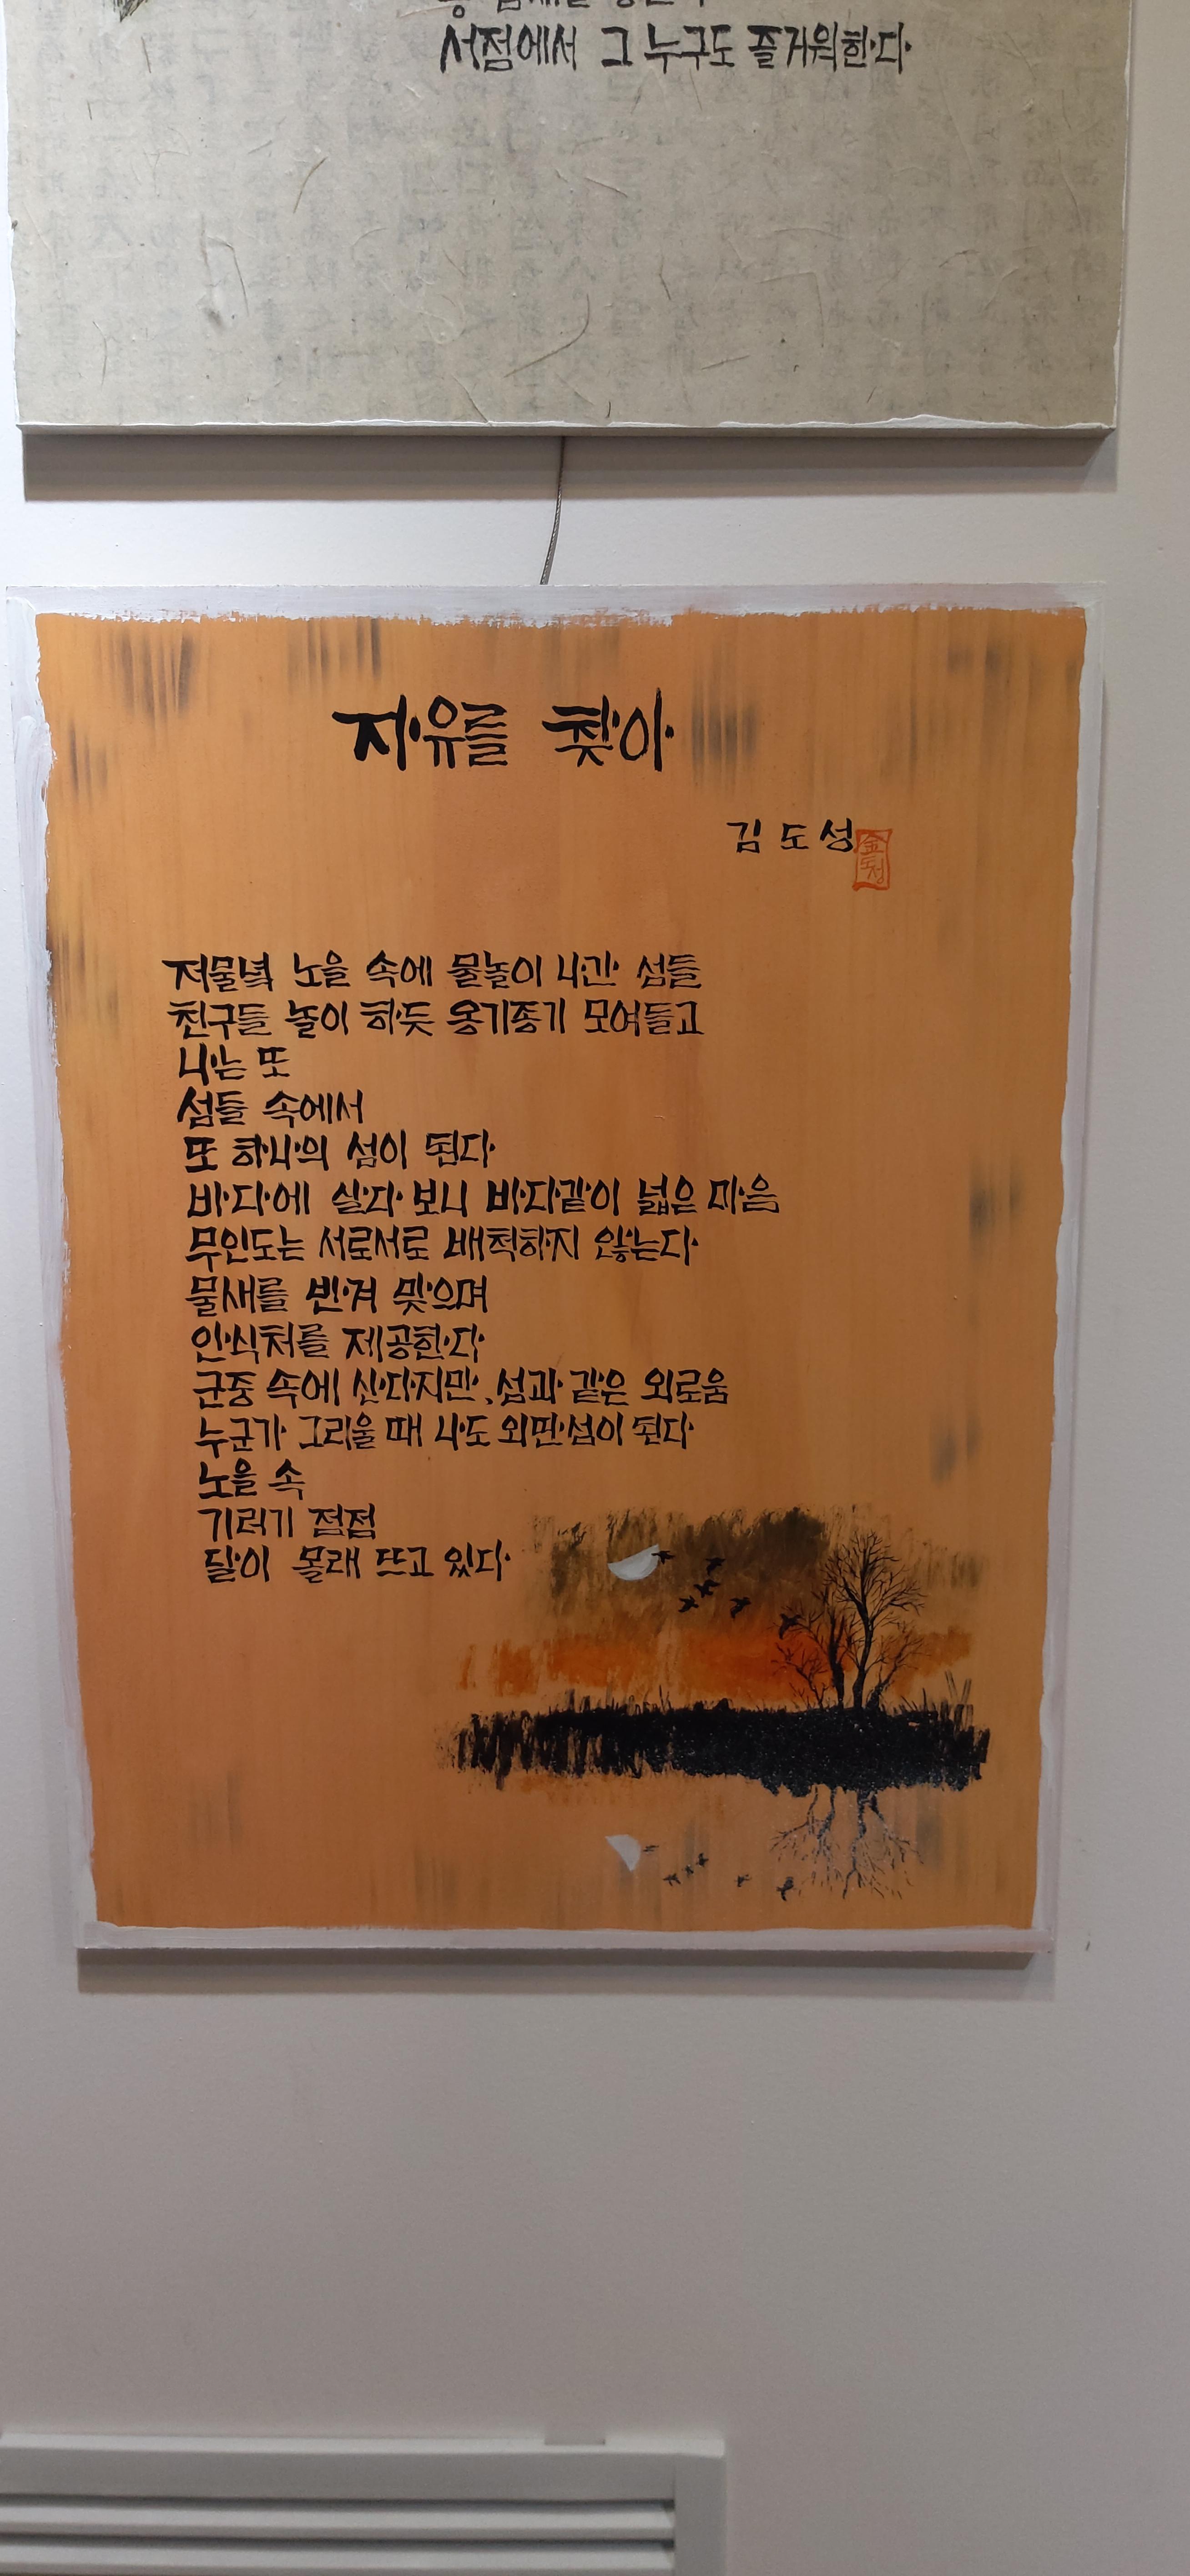 서점에서 그 누구도 즐거워한다
자유를 찾아
김도성
金도성
저물녘 노을 속에 물놀이 나간 섬들
친구들 놀이 하듯 옹기종기 모여들고
나는 또
섬들 속에서
또 하나의 섬이 된다
바다에 살다 보니 바다같이 넓은 마음
무인도는 서로서로 배척하지 않는다
물새를 반겨 맞으며
안식처를 제공한다
군중 속에 산다지만, 섬과 같은 외로움
누군가 그리울 때 나도 외딴섬이 된다
노을 속
기러기 점점
달이 몰래 뜨고 있다